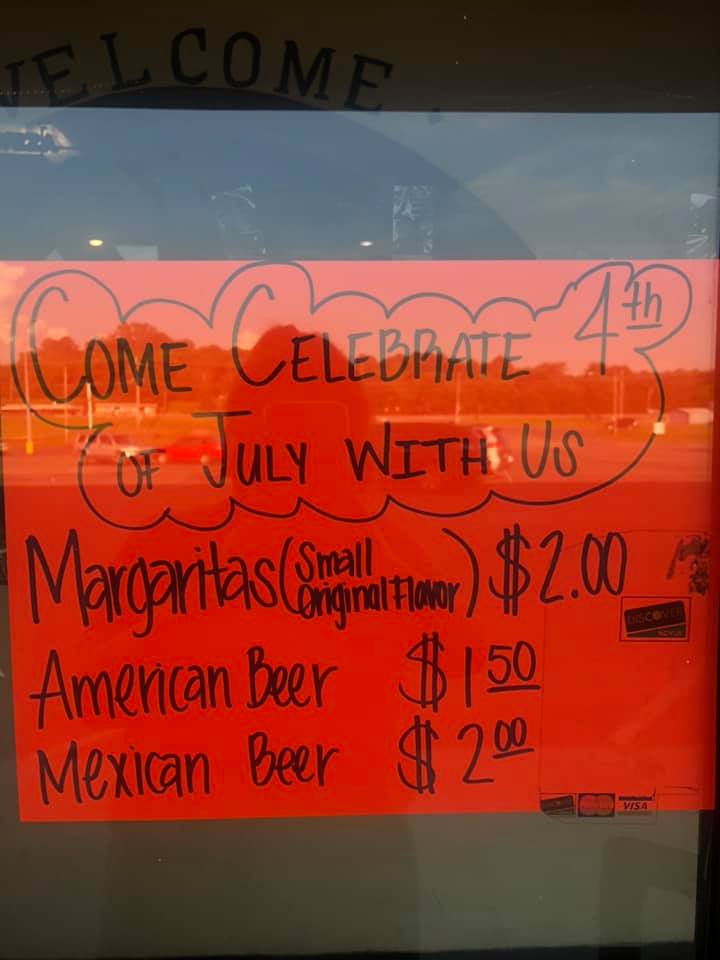 WELCOME
COME CELEBRATE 4th
OF JULY WITH US
Margaritas (Small Original Flavor) $2.00
DISCOVER
NOVUS
American Beer $1 50
Mexican Beer $2 00
VISA